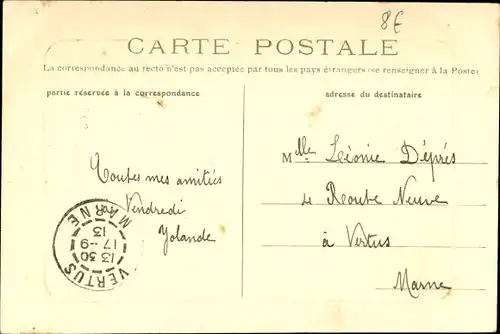 8€
CARTE POSTALE
La correspondance au recto n'est pas acceptée par tous les pays étrangers (se renseigner à la Poste)
partie réservée à la correspondance
adresse du destinataire
Toutes mes amitiés
Vendredi
Yolande
Mlle Léonie Déprés
4 Route Neuve
à Vertus
Marne
VERTUS
MARNE
13 30
17-9
13